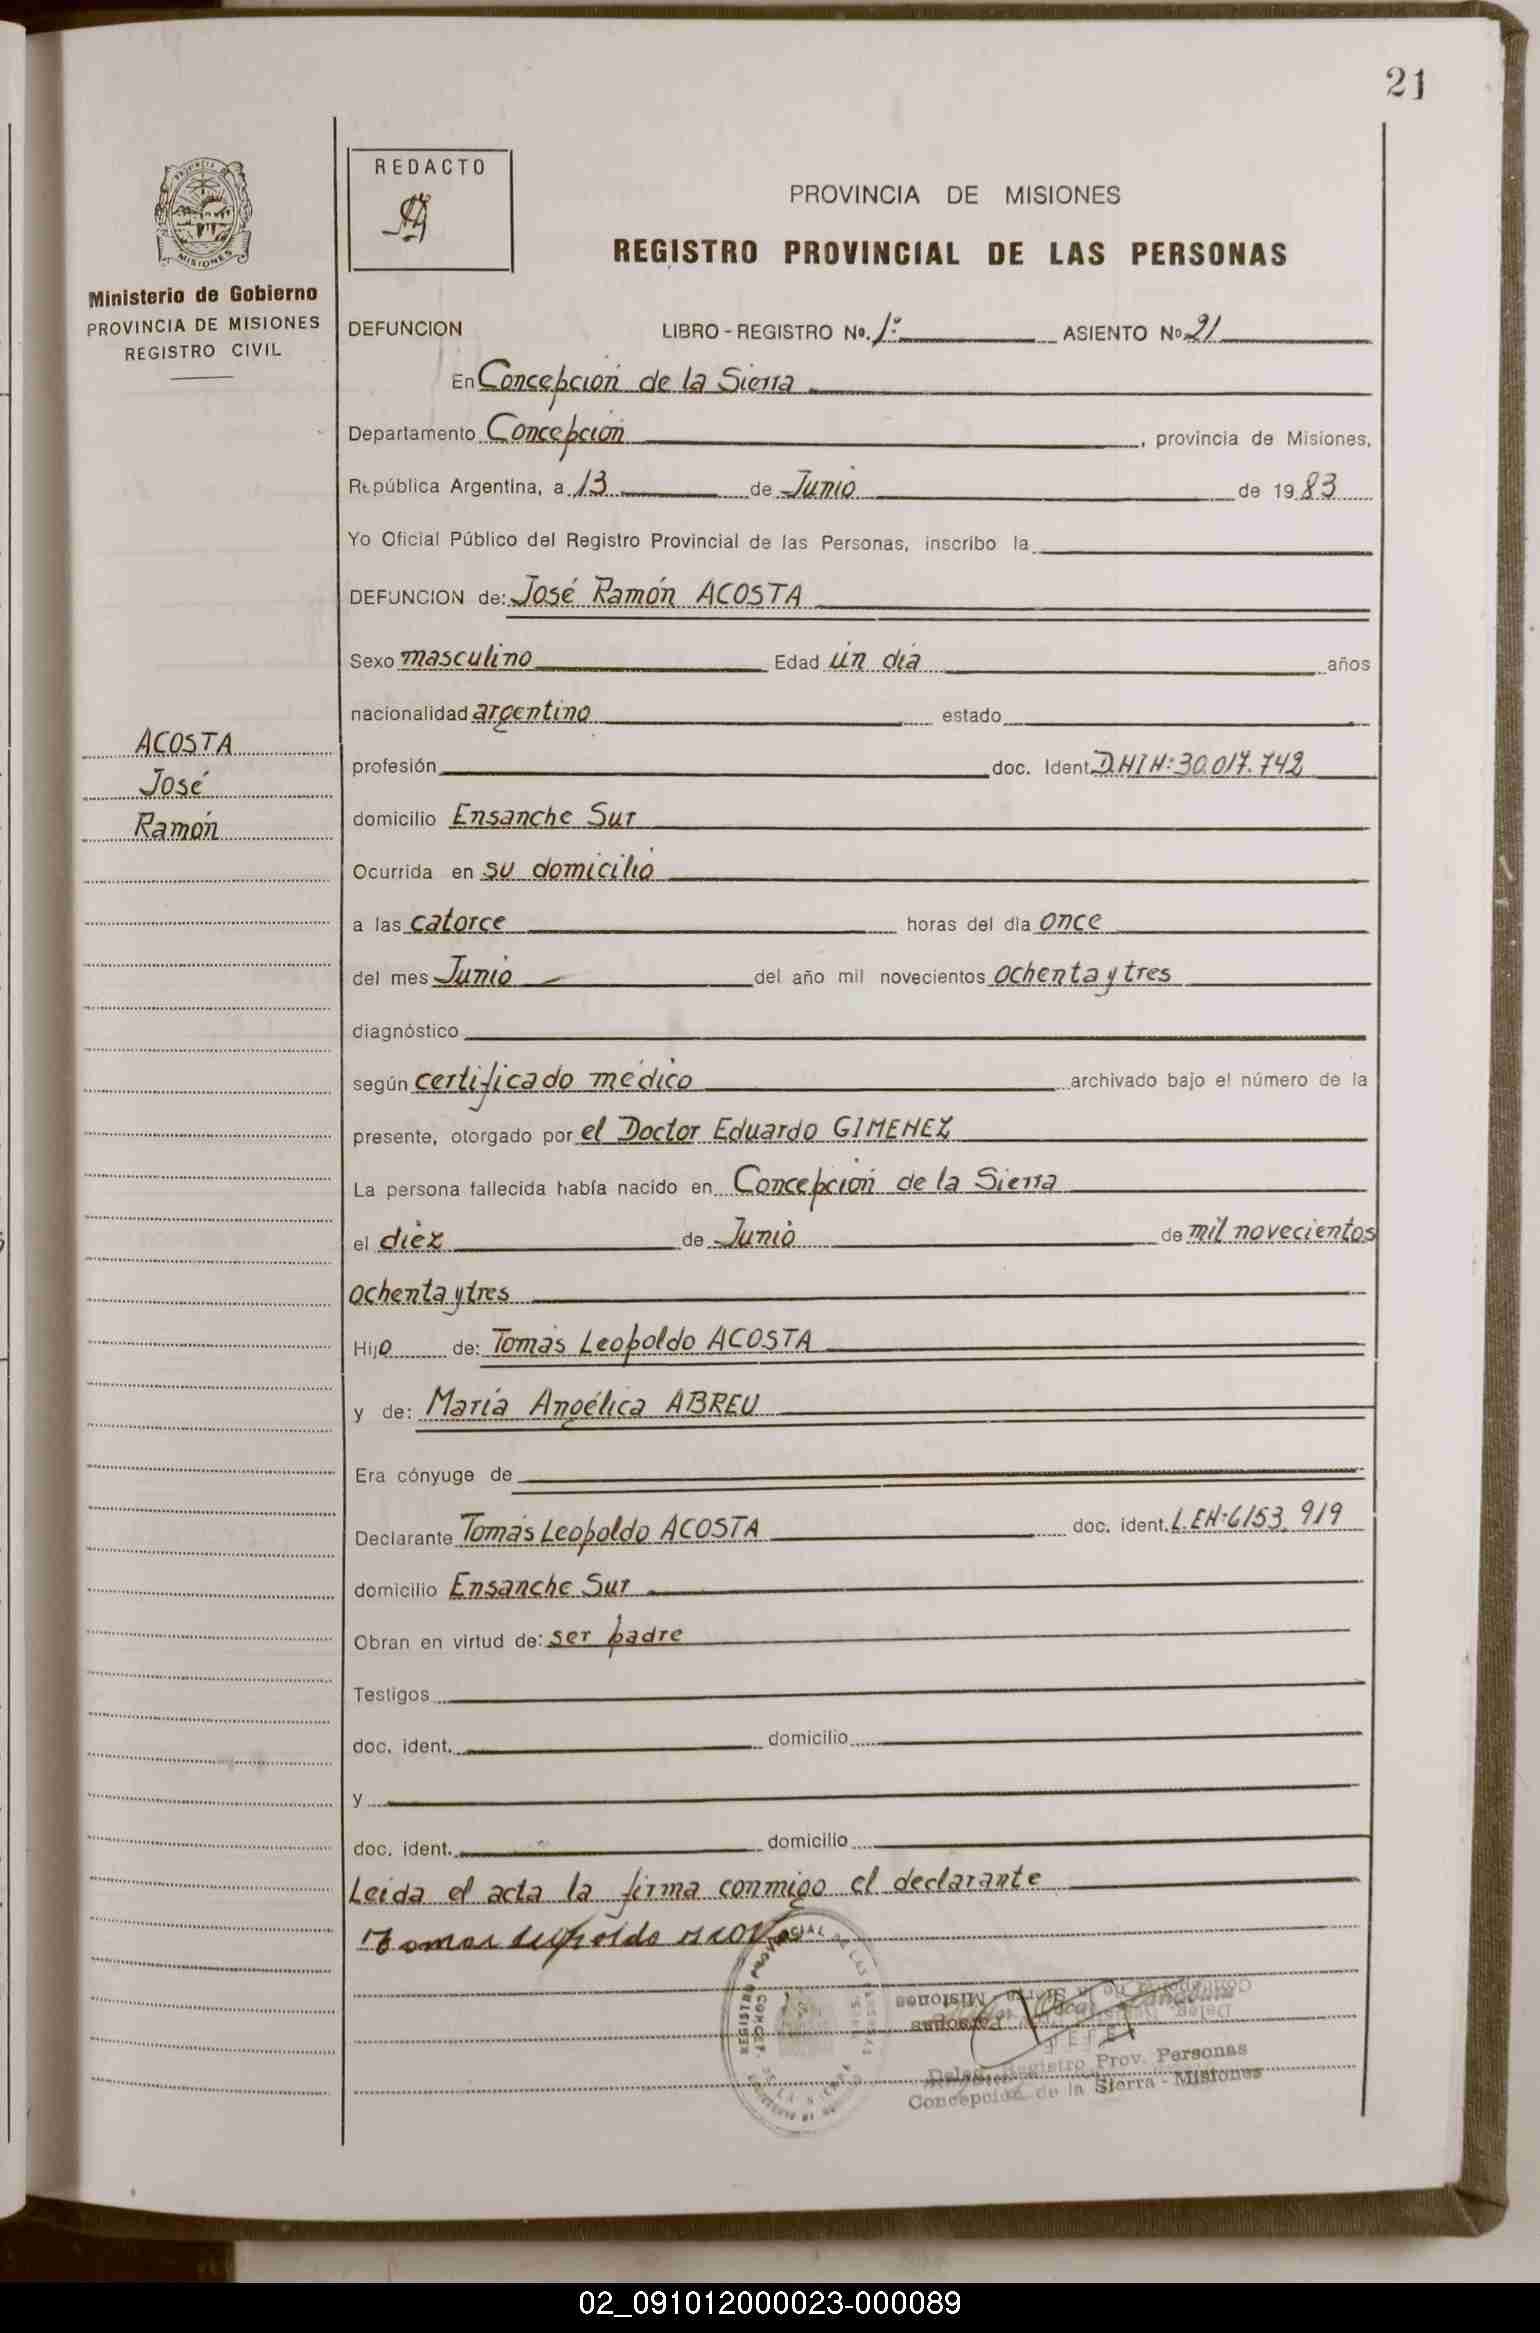 21
REDACTO
PROVINCIA DE MISIONES
REGISTRO PROVINCIAL DE LAS PERSONAS
MISIONES
Ministerio de Gobierno
PROVINCIA DE MISIONES
REGISTRO CIVIL
DEFUNCION LIBRO - REGISTRO No. 1º ASIENTO No 21
En Concepción de la Sierra
Departamento Concepción, provincia de Misiones,
República Argentina, a 13 de Junio de 1983
Yo Oficial Público del Registro Provincial de las Personas, inscribo la
DEFUNCION de: José Ramón ACOSTA
Sexo masculino Edad un día años
nacionalidad argentino estado
ACOSTA
José
Ramón
profesión doc. Ident. D.N.I N: 30.017.742
domicilio Ensanche Sur
Ocurrida en su domicilio
a las catorce horas del día once
del mes Junio del año mil novecientos ochenta y tres
diagnóstico
según certificado médico archivado bajo el número de la
presente, otorgado por el Doctor Eduardo GIMENEZ
La persona fallecida había nacido en Concepción de la Sierra
el diez de Junio de mil novecientos
ochenta y tres
Hijo de: Tomás Leopoldo ACOSTA
y de: María Angélica ABREU
Era cónyuge de
Declarante Tomás Leopoldo ACOSTA doc. ident. L.E N: 6153.919
domicilio Ensanche Sur
Obran en virtud de: ser padre
Testigos
doc. ident. domicilio
y
doc. ident. domicilio
Leída el acta la firma conmigo el declarante
Tomas Leopoldo
REGISTRO PROVINCIAL DE LAS
JEFE
Deleg. Registro Prov. Personas
Concepción de la Sierra - Misiones
02_091012000023-000089